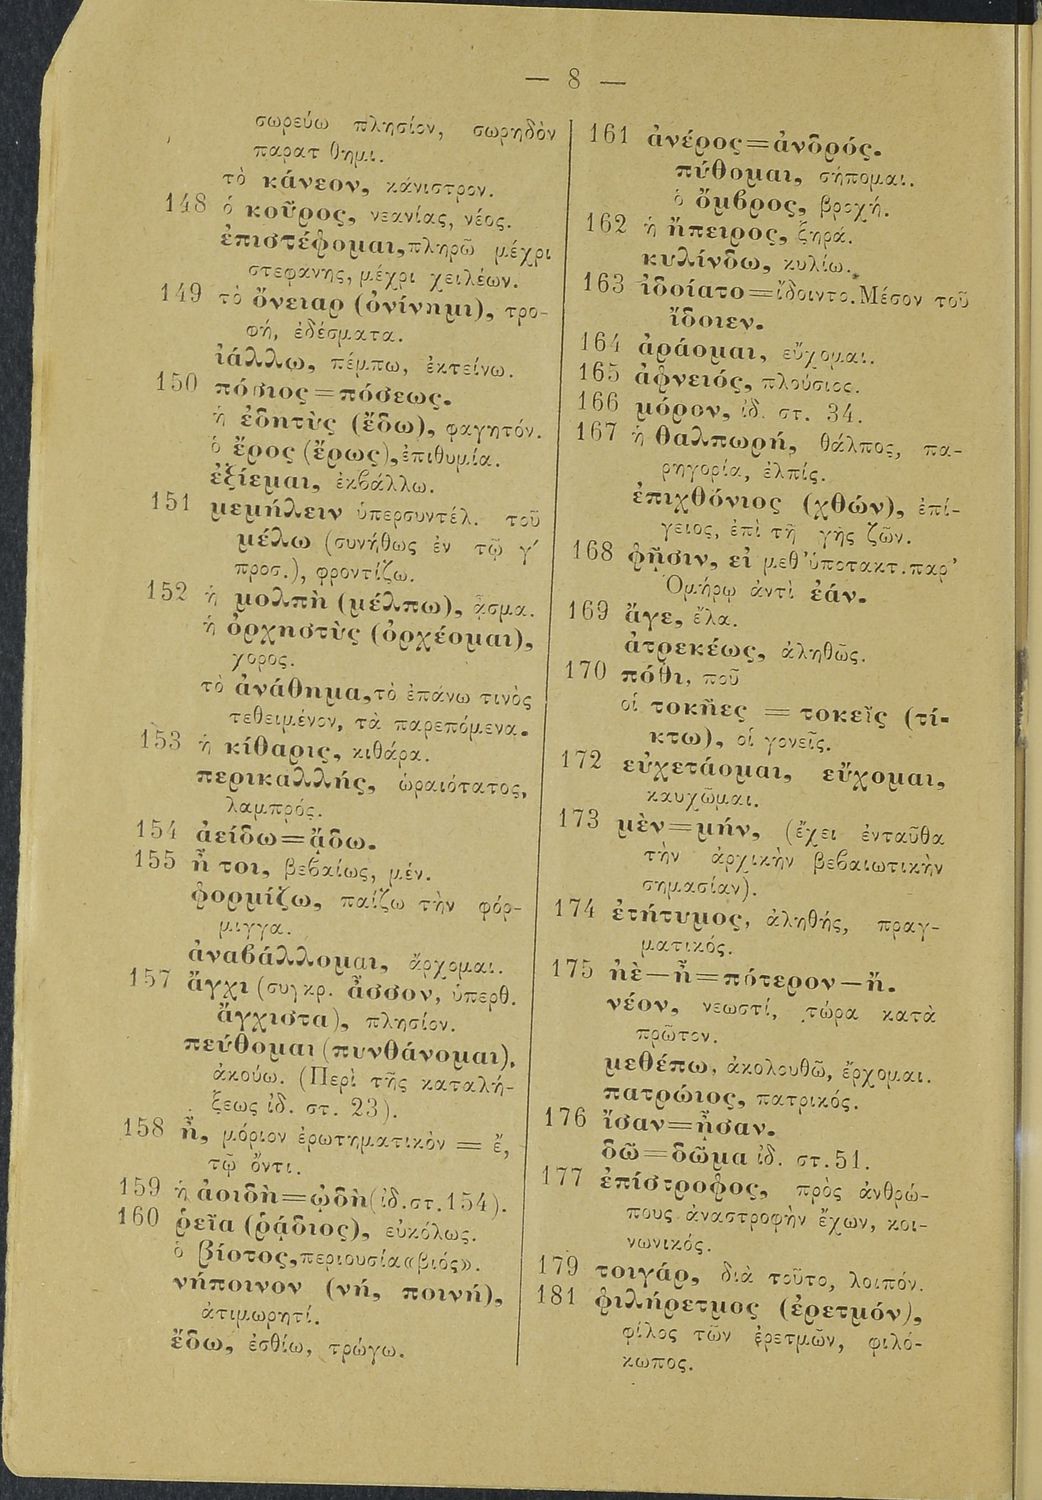 — 8 —
σωρεύω πλησίον, σωρηδὸν
παρατ θημι.
τὸ κάνεον, κάνιστρον.
148 ὁ κοῦρος, νεανίας, νέος.
ἐπιστέφομαι, πληρῶ μέχρι
στεφανης, μέχρι χειλέων.
149 τὸ ὄνειαρ (ὀνίνημι), τρο-
φή, ἐδέσματα.
ἰάλλω, πέμπω, ἐκτείνω.
150 πόσιος = πόσεως.
ἡ ἐδητὺς (ἔδω), φαγητόν.
ὁ ἔρος (ἔρως), ἐπιθυμία.
ἐξίεμαι, ἐκβάλλω.
151 μεμήλειν ὑπερσυντέλ. τοῦ
μέλω (συνήθως ἐν τῷ γ′
προσ.), φροντίζω.
152 ἡ μολπὴ (μέλπω), ᾆσμα.
ἡ ὀρχηστὺς (ὀρχέομαι),
χορος.
τὸ ἀνάθημα, τὸ ἐπάνω τινὸς
τεθειμένον, τὰ παρεπόμενα.
153 ἡ κίθαρις, κιθάρα.
περικαλλής, ὡραιότατος,
λαμπρός.
154 ἀείδω = ᾄδω.
155 ἦ τοι, βεβαίως, μέν.
φορμίζω, παίζω τὴν φόρ-
μιγγα.
ἀναβάλλομαι, ἄρχομαι.
157 ἄγχι (συγκρ. ἆσσον, ὑπερθ.
ἄγχιστα), πλησίον.
πεύθομαι (πυνθάνομαι),
ἀκούω. (Περὶ τῆς καταλή-
ξεως ἰδ. στ. 23).
158 ἦ, μόριον ἐρωτηματικὸν = ἔ,
τῷ ὄντι.
159 ἡ ἀοιδὴ = ᾠδὴ (ἰδ. στ. 154).
160 ῥεῖα (ῥᾴδιος), εὐκόλως.
ὁ βίοτος, περιουσία «βιός».
νήποινον (νή, ποινή),
ἀτιμωρητί.
ἔδω, ἐσθίω, τρώγω.
161 ἀνέρος = ἀνδρός.
πύθομαι, σήπομαι.
ὁ ὄμβρος, βροχή.
162 ἡ ἤπειρος, ξηρά.
κυλίνδω, κυλίω.
163 ἰδοίατο = ἴδοιντο. Μέσον τοῦ
ἴδοιεν.
164 ἀράομαι, εὔχομαι.
165 ἀφνειός, πλούσιος.
166 μόρον, ἰδ. στ. 34.
167 ἡ θαλπωρή, θάλπος, πα-
ρηγορία, ἐλπίς.
ἐπιχθόνιος (χθών), ἐπί-
γειος, ἐπὶ τῆ γῆς ζῶν.
168 φῇσιν, εἰ μεθ' ὑποτακτ. παρ'
Ὁμήρῳ ἀντὶ ἐάν.
169 ἄγε, ἔλα.
ἀτρεκέως, ἀληθῶς.
170 πόθι, ποῦ
οἱ τοκῆες = τοκεῖς (τί-
κτω), οἱ γονεῖς.
172 εὐχετάομαι, εὔχομαι,
καυχῶμαι.
173 μὲν = μήν, (ἔχει ἐνταῦθα
τὴν ἀρχικὴν βεβαιωτικὴν
σημασίαν).
174 ἐτήτυμος, ἀληθής, πραγ-
ματικός.
175 ἠὲ — ἦ = πότερον — ἤ.
νέον, νεωστί, τώρα κατὰ
πρῶτον.
μεθέπω, ἀκολουθῶ, ἔρχομαι.
πατρώιος, πατρικός.
176 ἴσαν = ἦσαν.
δῶ = δῶμα ἰδ. στ. 51.
177 ἐπίστροφος, πρὸς ἀνθρώ-
πους ἀναστροφὴν ἔχων, κοι-
νωνικός.
179 τοιγάρ, διὰ τοῦτο, λοιπόν.
181 φιλήρετμος (ἐρετμόν),
φίλος τῶν ἐρετμῶν, φιλό-
κωπος.